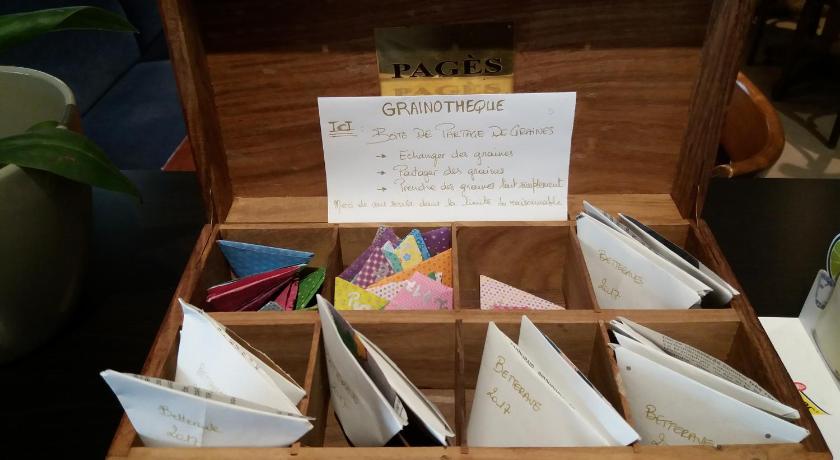 PAGÈS
GRAINOTHEQUE
ICI : BOITE DE PARTAGE DE GRAINES
→ Echanger des graines
→ Partager des graines
→ Prendre des graines tout simplement
Merci de vous servir dans la limite du raisonnable
BETTERAVE
2017
Betterave
2017
BETTERAVE
2017
BETTERAVE